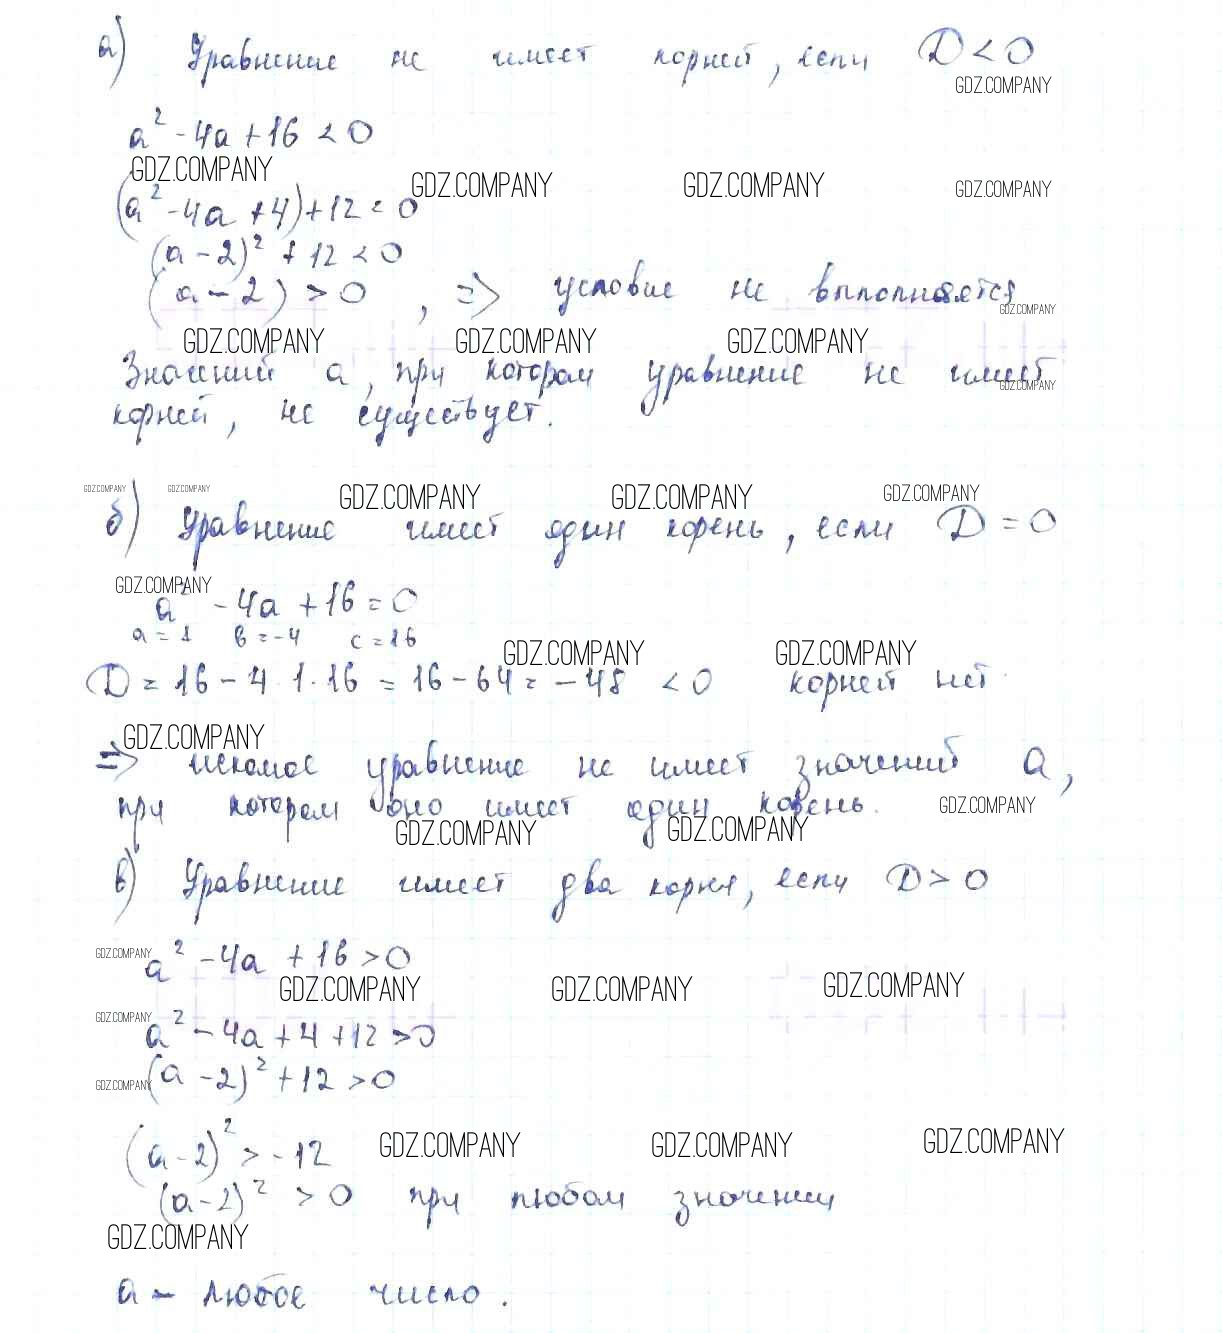 а) Уравнение не имеет корней, если D < 0
GDZ.COMPANY
a² - 4a + 16 < 0
GDZ.COMPANY GDZ.COMPANY GDZ.COMPANY GDZ.COMPANY
(a² - 4a + 4) + 12 < 0
(a - 2)² + 12 < 0
(a - 2) > 0 , => условие не выполняется
GDZ.COMPANY
GDZ.COMPANY GDZ.COMPANY GDZ.COMPANY
Значений a, при котором уравнение не имеет
GDZ.COMPANY
корней, не существует.
GDZ.COMPANY GDZ.COMPANY GDZ.COMPANY GDZ.COMPANY GDZ.COMPANY
б) Уравнение имеет один корень, если D = 0
GDZ.COMPANY
a² - 4a + 16 = 0
a = 1 в = -4 c = 16
GDZ.COMPANY GDZ.COMPANY
D = 16 - 4·1·16 = 16 - 64 = -48 < 0 корней нет
GDZ.COMPANY
=> искомое уравнение не имеет значений a,
при котором оно имеет один корень.
GDZ.COMPANY
GDZ.COMPANY GDZ.COMPANY
в) Уравнение имеет два корня, если D > 0
GDZ.COMPANY
a² - 4a + 16 > 0
GDZ.COMPANY GDZ.COMPANY GDZ.COMPANY
GDZ.COMPANY
a² - 4a + 4 + 12 > 0
GDZ.COMPANY
(a - 2)² + 12 > 0
GDZ.COMPANY GDZ.COMPANY GDZ.COMPANY
(a - 2)² > -12
(a - 2)² > 0 при любом значении
GDZ.COMPANY
a - любое число.